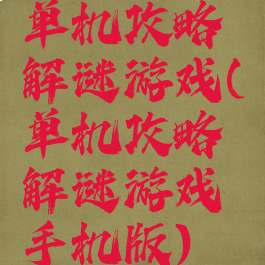 单机攻略
解谜游戏(
单机攻略
解谜游戏
手机版)